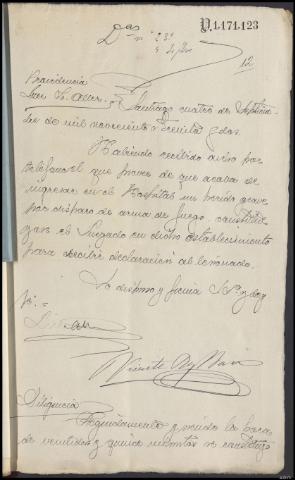 D.1.171.123
Providencia
Santiago cuatro de Septiem-
bre de mil novecientos treinta y dos.
Habiendo recibido aviso por
teléfono el que provee de que acaba de
ingresar en el Hospital un herido grave
por disparo de arma de fuego, constitu-
yase el Juzgado en dicho establecimiento
para recibir declaración al lesionado.
Lo dispuso y firma S. Sª doy
fé=
Diligencia
Seguidamente y siendo la hora
de veintidos y quince minutos se constituyo